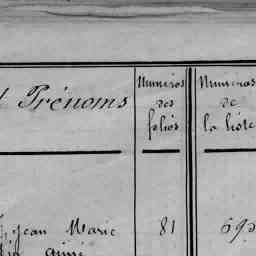 Prénoms
Numéros
des
folios
Numéros
de
la liste
Jean Marie 81
Aimé